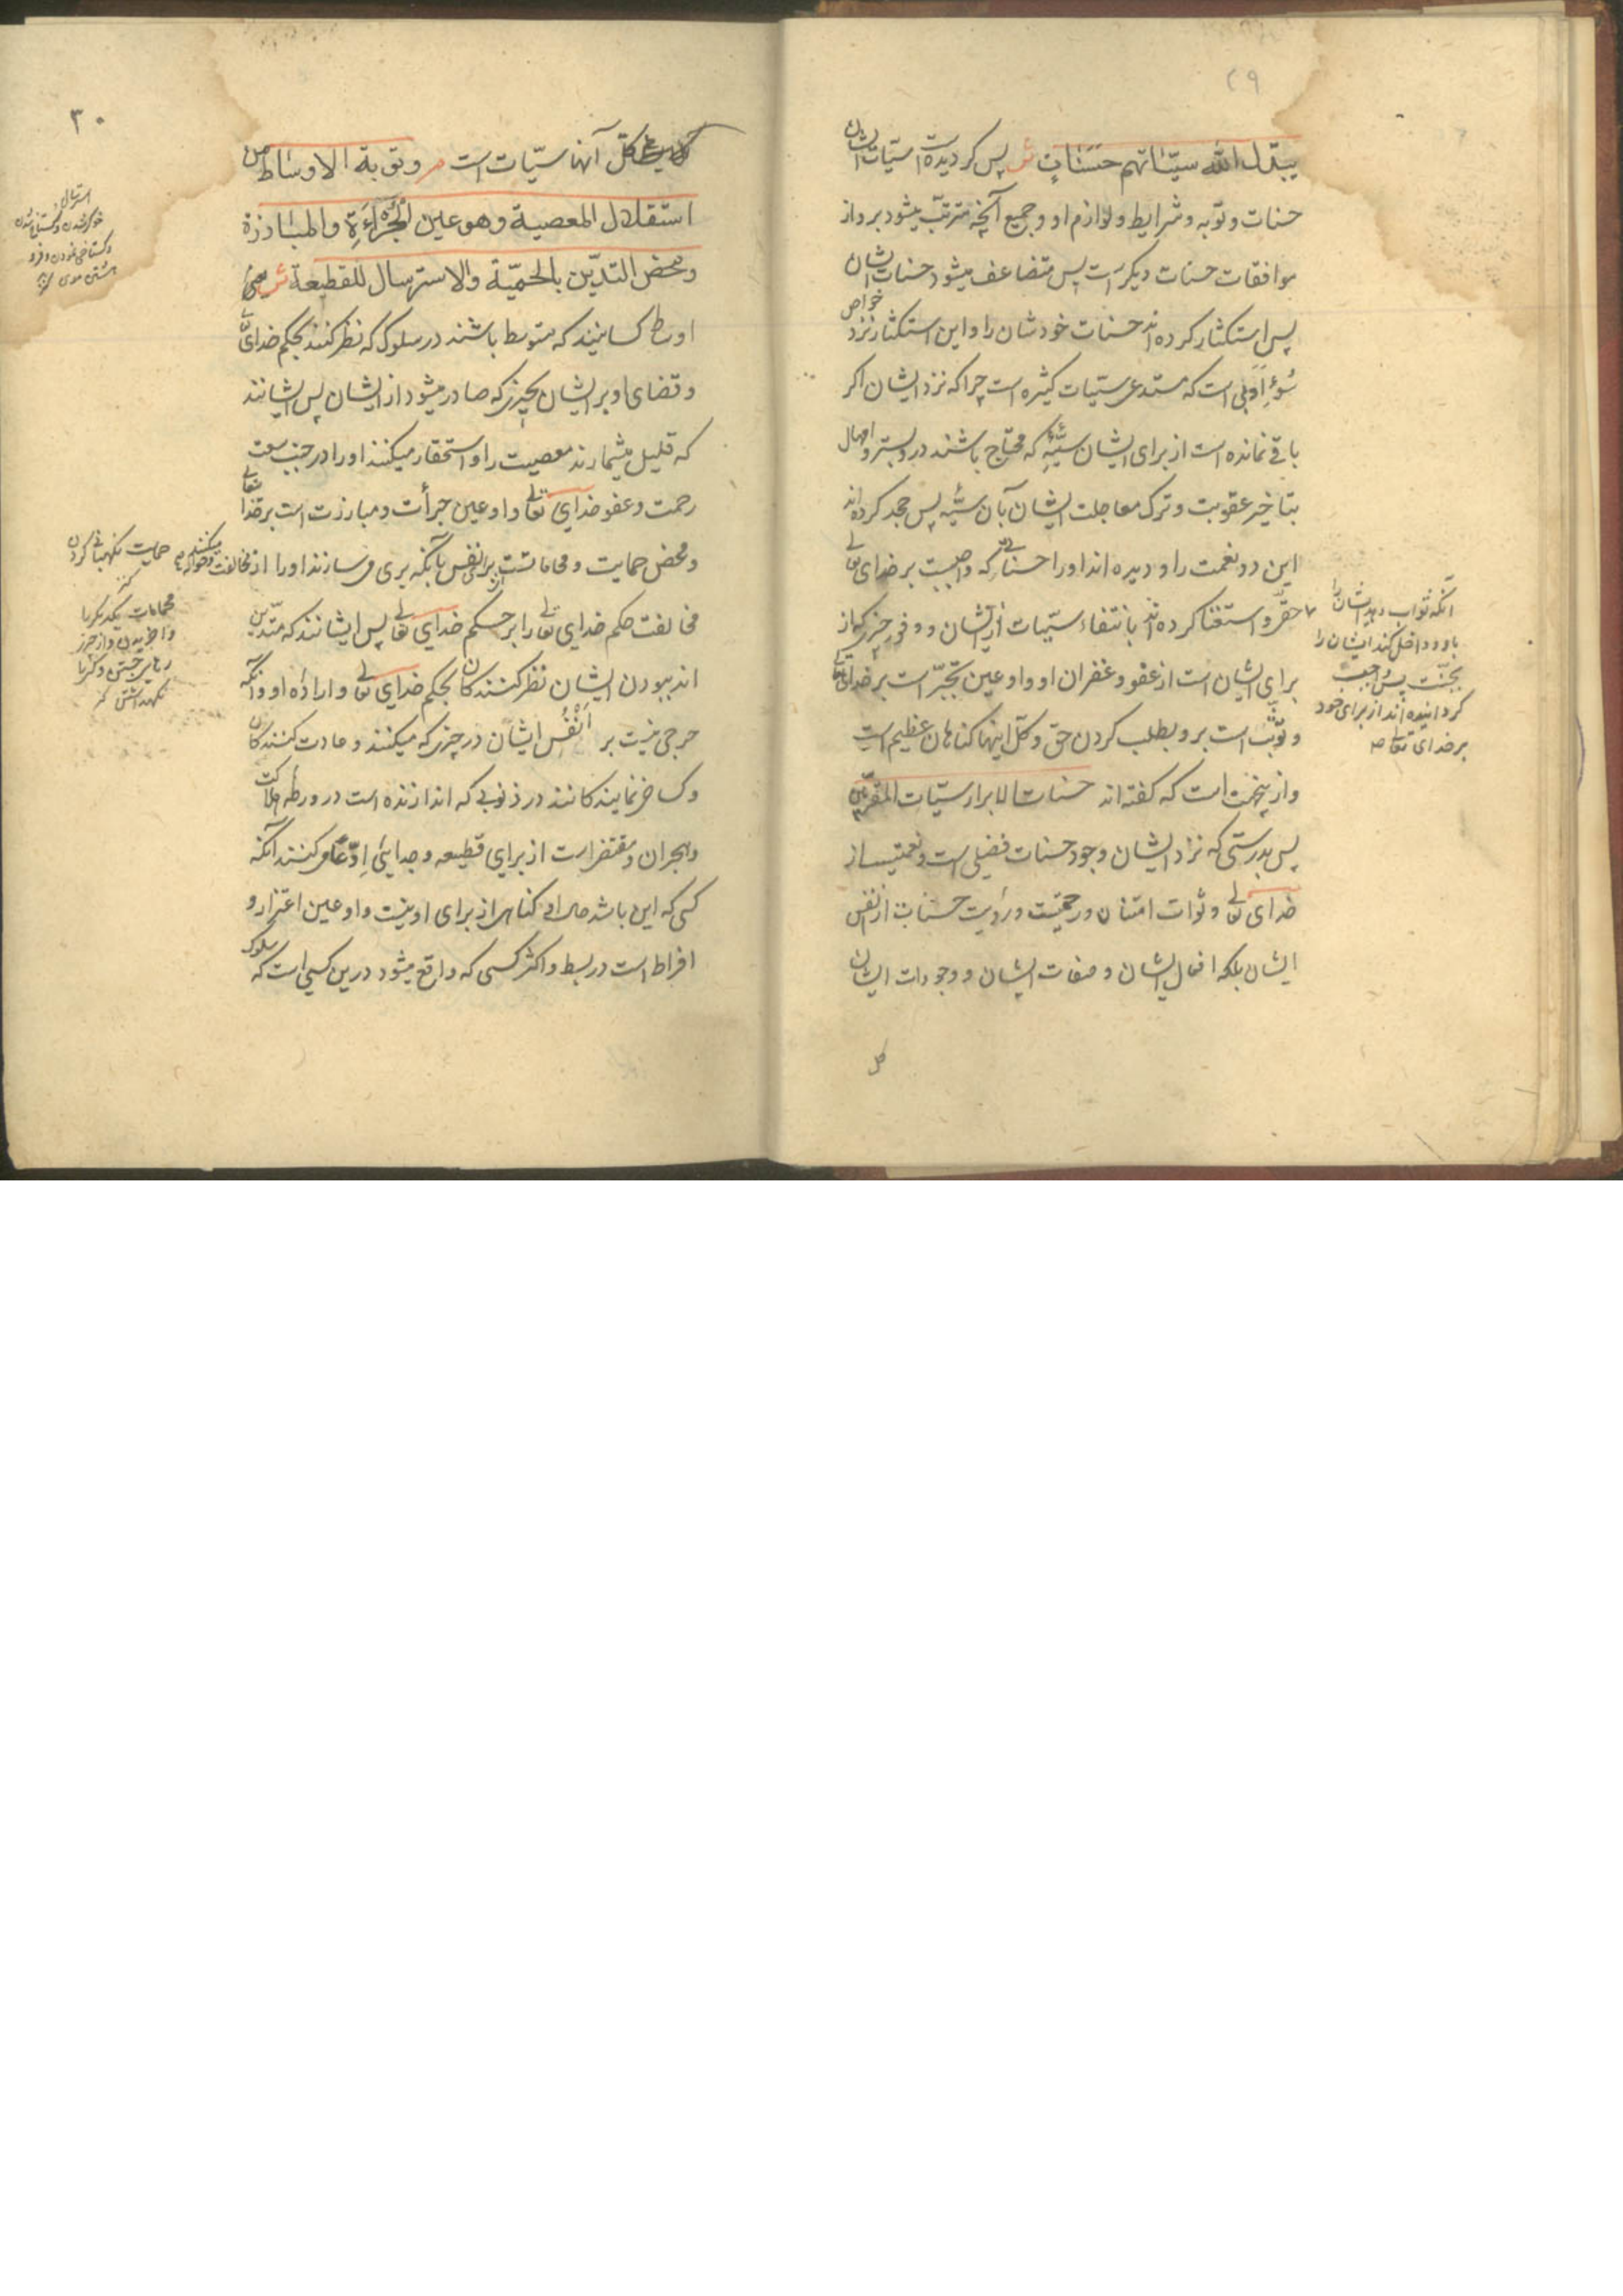 ۲۹
یبدّل الله سیّئاتهم حَسَنَاتٍ ش پس کردیده است سیّئات ایشان
حسنات و توبه و شرایط و لوازم او و جمیع آنچه مترتب میشود بر او از
موافقات حسنات دیکر است پس متضاعف میشود حسنات ایشان
پس استکثار کرده اند حسنات خودشان را و این استکثار نزد خواص
سُوءِ اَدبی است که مستدعی سیّئات کثیره است چرا که نزد ایشان اکر
باقی نمانده است از برای ایشان سیّئه که محتاج باشند در و بستر و امهال
بتاخیر عقوبت و ترک معاجلت ایشان بآن سیّئه پس جحد کرده اند
این دو نعمت را و دیده اند او را حسناتی که واجبست بر خدای تعالی
حقّ و استغنا کرده اند بانتفاء سیّئات از ایشان و وفور چیزی که از
برای ایشان است از عفو و غفران او و او عین تجبّر است بر خدای تعالی
و توثّب است برو بطلب کردن حق و کلّ اینها کناهان عظیم است
و ازینجهت است که کفته اند حسنات الابرار سیّئات المقرّبین
پس بدرستی که نزد ایشان وجود حسنات فضلی است و نعمتیست از
خدای تعالی و ثوات امتنان و رحمتست و رؤیت حسنات از نفس
ایشان بلکه افعال ایشان و صفات ایشان و وجودات ایشان
کل
آنکه ثواب دهد ایشان را
باو و داخل کند ایشان را
بجنّت پس واجب
کردانیده اند از برای خود
بر خدای تعالی
۳۰
کل آنها سیّئات است م و توبة الاوساط من
استقلال المعصیة و هو عین الجُرْاءَةِ و المبارزة
و محض التدیّن بالحمیّة والاسترسال للقطیعة ش یعنی
اوساط کسانیند که متوسط باشند در سلوک که نظر کنند بحکم خدای تعالی
و قضای او بر ایشان بچیزی که صادر میشود از ایشان پس ایشانند
که قلیل میشمارند معصیت را و استحقار میکنند او را در جنب سعت
رحمت و عفو خدای تعالی و او عین جرأت و مبارزت است بر خدا تعالی
و محض حمایت و محاماتست از برای نفس بآنکه بری می سازند او را از مخالفت و حواله میکنند
مخالفت حکم خدای تعالی را بر حکم خدای تعالی پس ایشانند که متدیّن
اند ببودن ایشان نظر کنندکان بحکم خدای تعالی و اراده او و آنکه
حرجی نیست بر اَنْفُس ایشان در چیزی که میکنند و عادت کنندکان
و کساخر نمایندکانند در ذنوبی که اندازنده است در ورطه هلاکت
و هجران و مقتضی است از برای قطیعه و جدایی و اِدّعا می کنند آنکه
کسی که این باشد حال او کناهی از برای او نیست و او عین اغترار و
افراط است در بسط و اکثر کسی که واقع میشود درین کسی است که سلوک
استرسال
حمایت نکهبانی کردن
محامات یکدیکر را
نکهداشتن